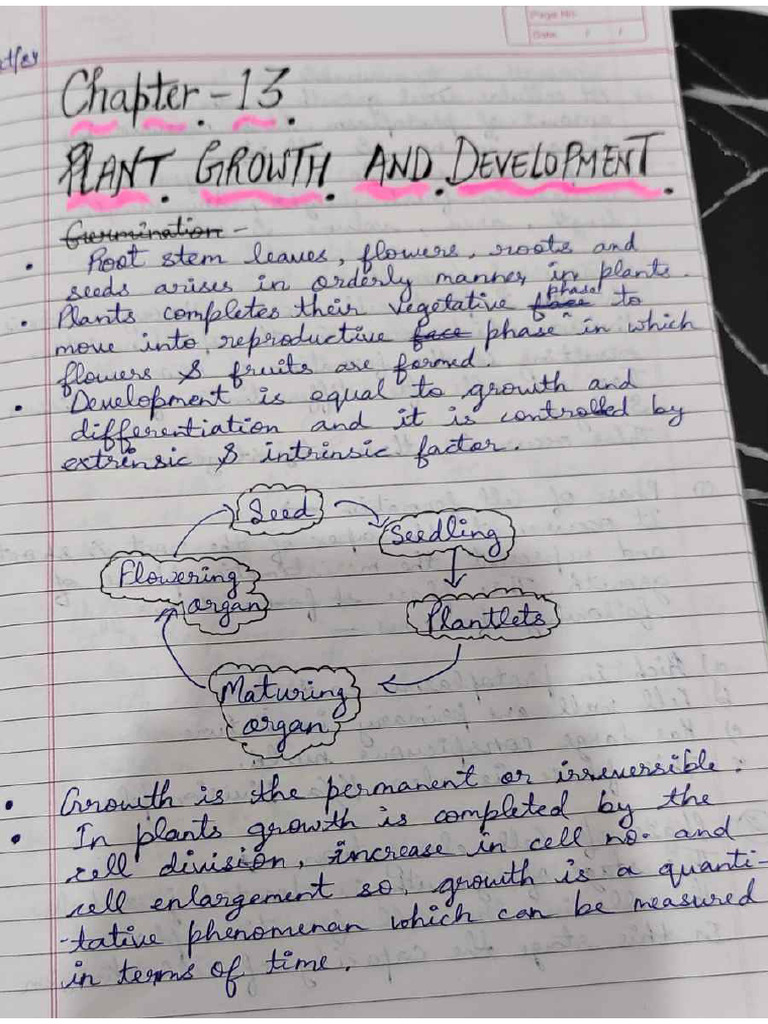 Page No.
Date / /
Chapter - 13.
PLANT GROWTH AND DEVELOPMENT.
Germination -
• Root stem leaves, flowers, roots and
seeds arises in orderly manner, in plants.
• Plants completes their vegetative face phase to
move into reproductive face phase in which
flowers & fruits are formed.
• Development is equal to growth and
differentiation and it is controlled by
extrinsic & intrinsic factor.
Seed
Seedling
Plantlets
Maturing
organ
Flowering
organ
• Growth is the permanent or irreversible.
• In plants growth is completed by the
cell division, increase in cell no. and
cell enlargement so, growth is a quanti-
-tative phenomenan which can be measured
in terms of time.